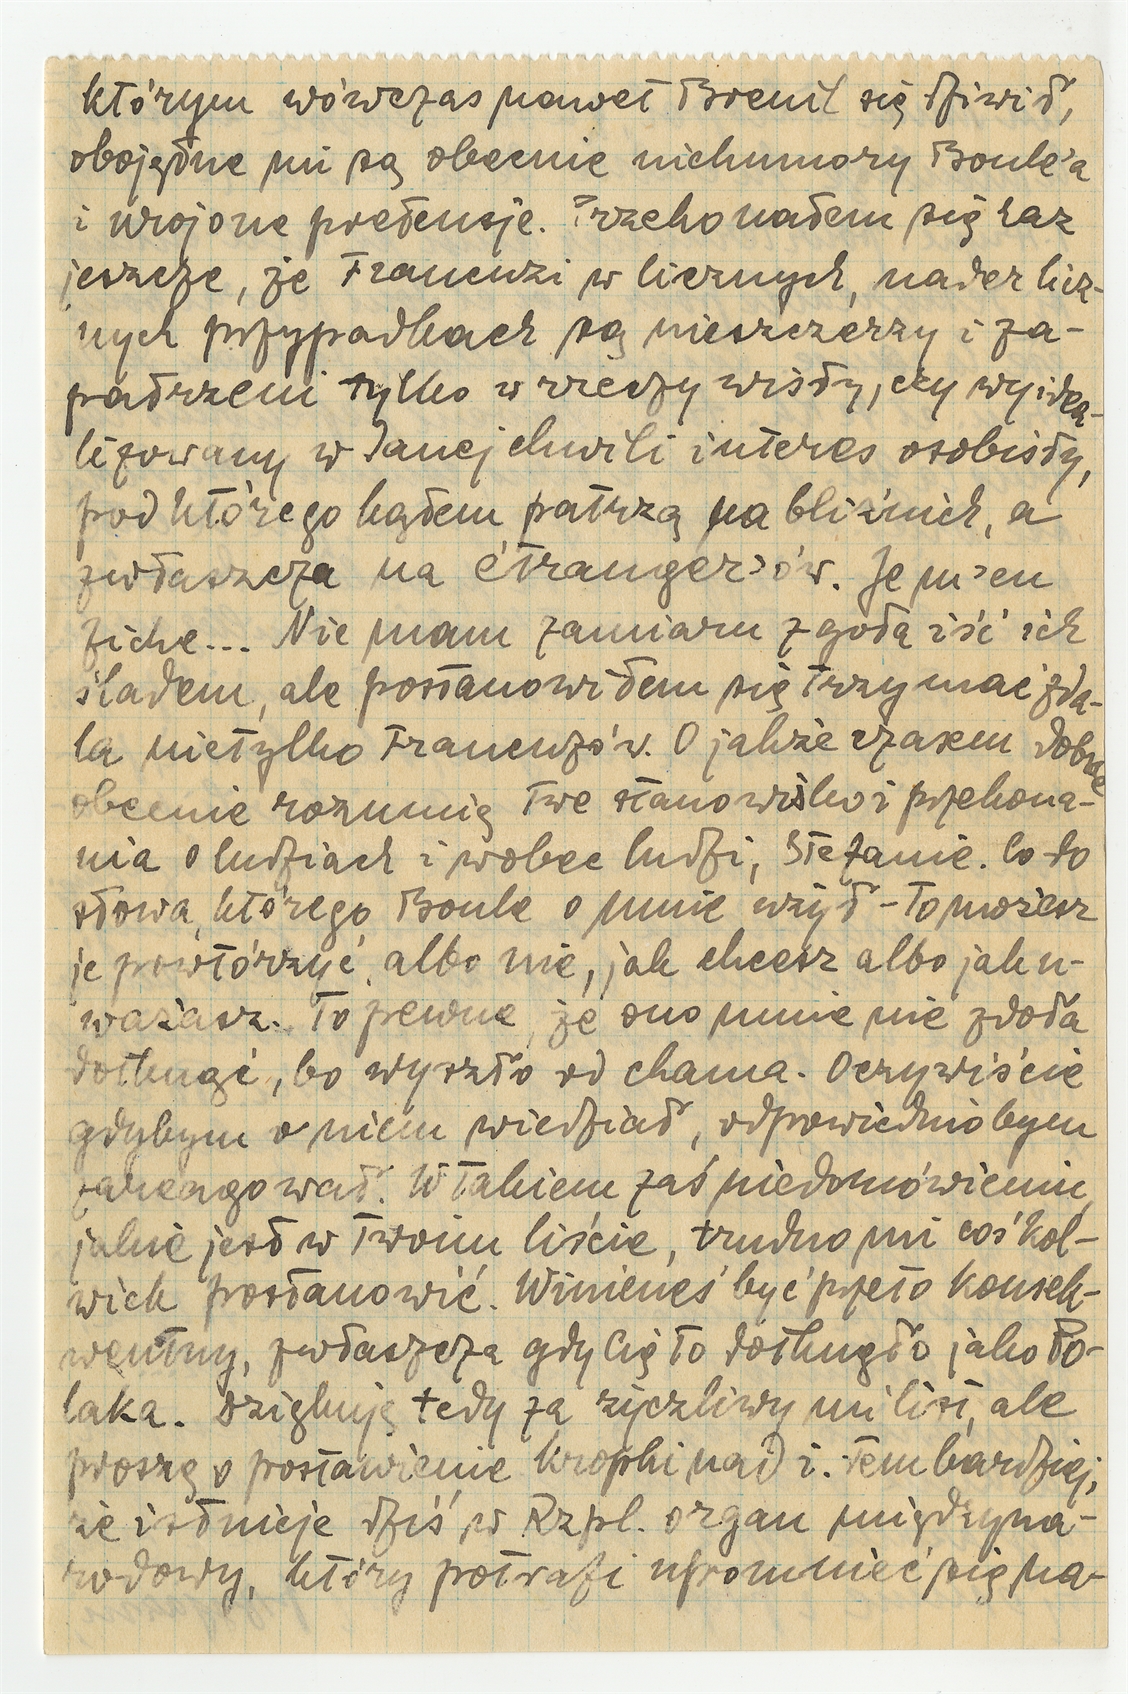 którym wówczas nawet Breuil się dziwił,
obojętne mi są obecnie niehumory Boule'a
i urojone pretensje. Przekonałem się raz
jeszcze, że Francuzi w licznych, nader licz-
nych przypadkach są nieszczerzy i za-
patrzeni tylko w rzeczywisty, czy wyidea-
lizowany w danej chwili interes osobisty,
pod którego kątem patrzą na bliźnich, a
zwłaszcza na étranger'ów. Je m'en
fiche... Nie mam zamiaru zgoła iść ich
śladem, ale postanowiłem się trzymać zda-
la nietylko Francuzów. O jakże czasem dobrze
obecnie rozumię Twe stanowisko i przekona-
nia o ludziach i wobec ludzi, Stefanie. Co do
słowa, którego Boule o mnie użył - to możesz
je powtórzyć albo nie, jak chcesz albo jak u-
ważasz. To pewne, że ono mnie nie zdoła
dotknąć, bo wyszło od chama. Oczywiście
gdybym o niem wiedział, odpowiedniobym
zareagował. W takiem zaś niedomówieniu,
jakie jest w Twoim liście, trudno mi coś kol-
wiek postanowić. Winieneś być przeto konsek-
wentny, zwłaszcza gdy Cię to dotknęło jako Po-
laka. Dziękuję tedy za życzliwy mi list, ale
proszę o postawienie kropki nad i. Tembardziej,
że istnieje dziś w Rzpl. organ międzyna-
rodowy, który potrafi upomnieć się na-